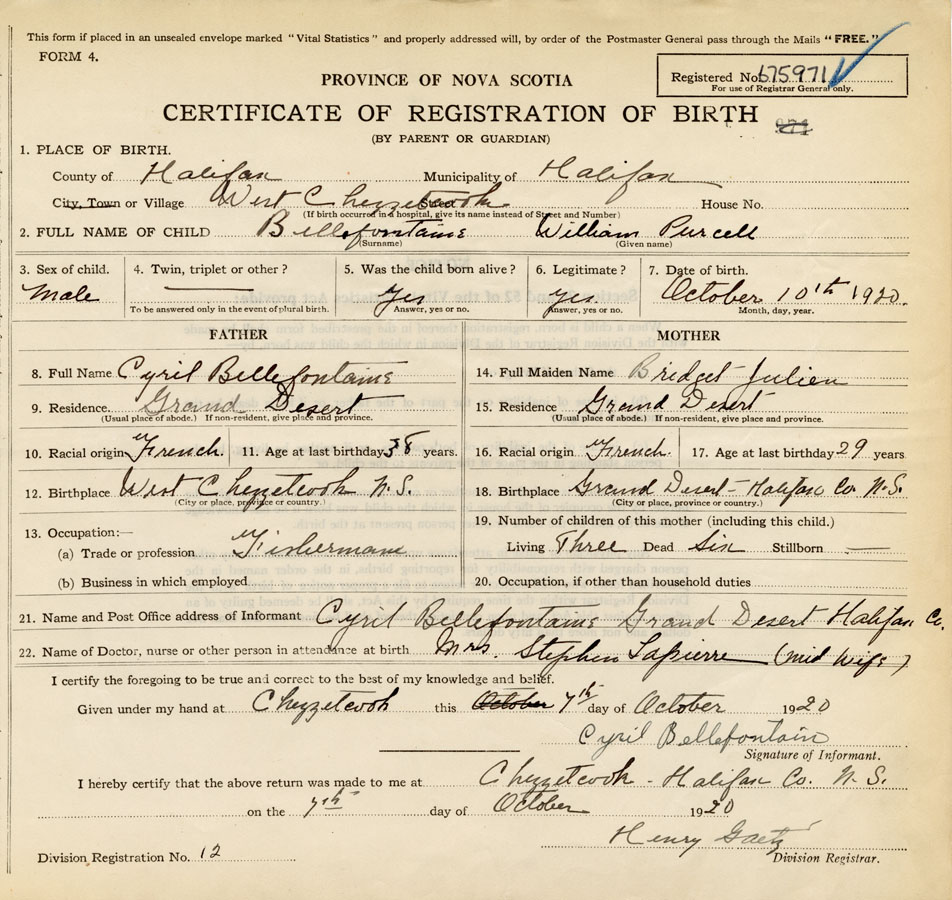 This form if placed in an unsealed envelope marked "Vital Statistics" and properly addressed will, by order of the Postmaster General pass through the Mails "FREE."
FORM 4.
PROVINCE OF NOVA SCOTIA
Registered No. 675971
For use of Registrar General only.
CERTIFICATE OF REGISTRATION OF BIRTH
(BY PARENT OR GUARDIAN)
1. PLACE OF BIRTH.
County of Halifax Municipality of Halifax
City, Town or Village West Chezzetcook Street House No.
(If birth occurred in a hospital, give its name instead of Street and Number)
2. FULL NAME OF CHILD Bellefontaine William Purcell
(Surname) (Given name)
3. Sex of child. 4. Twin, triplet or other? 5. Was the child born alive? 6. Legitimate? 7. Date of birth.
Male Yes Yes. October 10th 1920.
To be answered only in the event of plural birth. Answer, yes or no. Answer, yes or no. Month, day, year.
FATHER MOTHER
8. Full Name Cyril Bellefontaine 14. Full Maiden Name Bridget Julien
9. Residence. Grand Desert 15. Residence Grand Desert
(Usual place of abode.) If non-resident, give place and province. (Usual place of abode.) If non-resident, give place and province.
10. Racial origin French. 11. Age at last birthday 38 years. 16. Racial origin French. 17. Age at last birthday 29 years
12. Birthplace West Chezzetcook N.S. 18. Birthplace Grand Desert - Halifax Co. N.S.
(City or place, province or country.) (City or place, province or country.)
13. Occupation:— 19. Number of children of this mother (including this child.)
(a) Trade or profession Fisherman Living Three Dead Six Stillborn —
(b) Business in which employed 20. Occupation, if other than household duties
21. Name and Post Office address of Informant Cyril Bellefontaine Grand Desert Halifax Co.
22. Name of Doctor, nurse or other person in attendance at birth Mrs. Stephen Lapierre (mid wife)
I certify the foregoing to be true and correct to the best of my knowledge and belief.
Given under my hand at Chezzetcook this October 7th day of October 1920
Cyril Bellefontain
Signature of Informant.
I hereby certify that the above return was made to me at Chezzetcook - Halifax Co. N.S.
on the 7th day of October 1920
Henry Gaetz
Division Registration No. 12 Division Registrar.